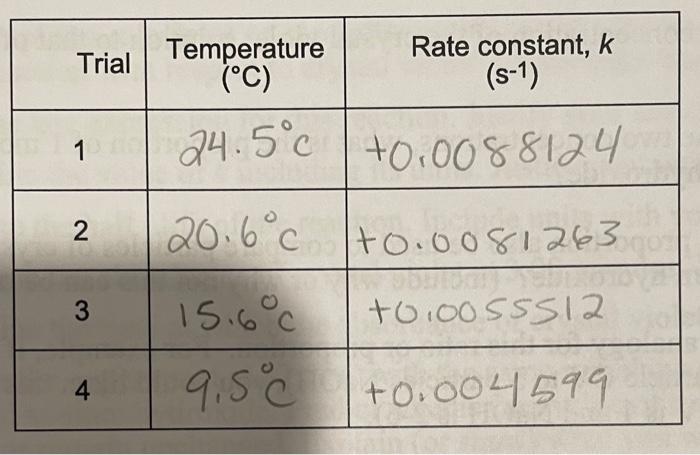 Trial Temperature (°C) Rate constant, k (s-1)
1 24.5°C +0.0088124
2 20.6°C +0.0081263
3 15.6°C +0.0055512
4 9.5°C +0.004599